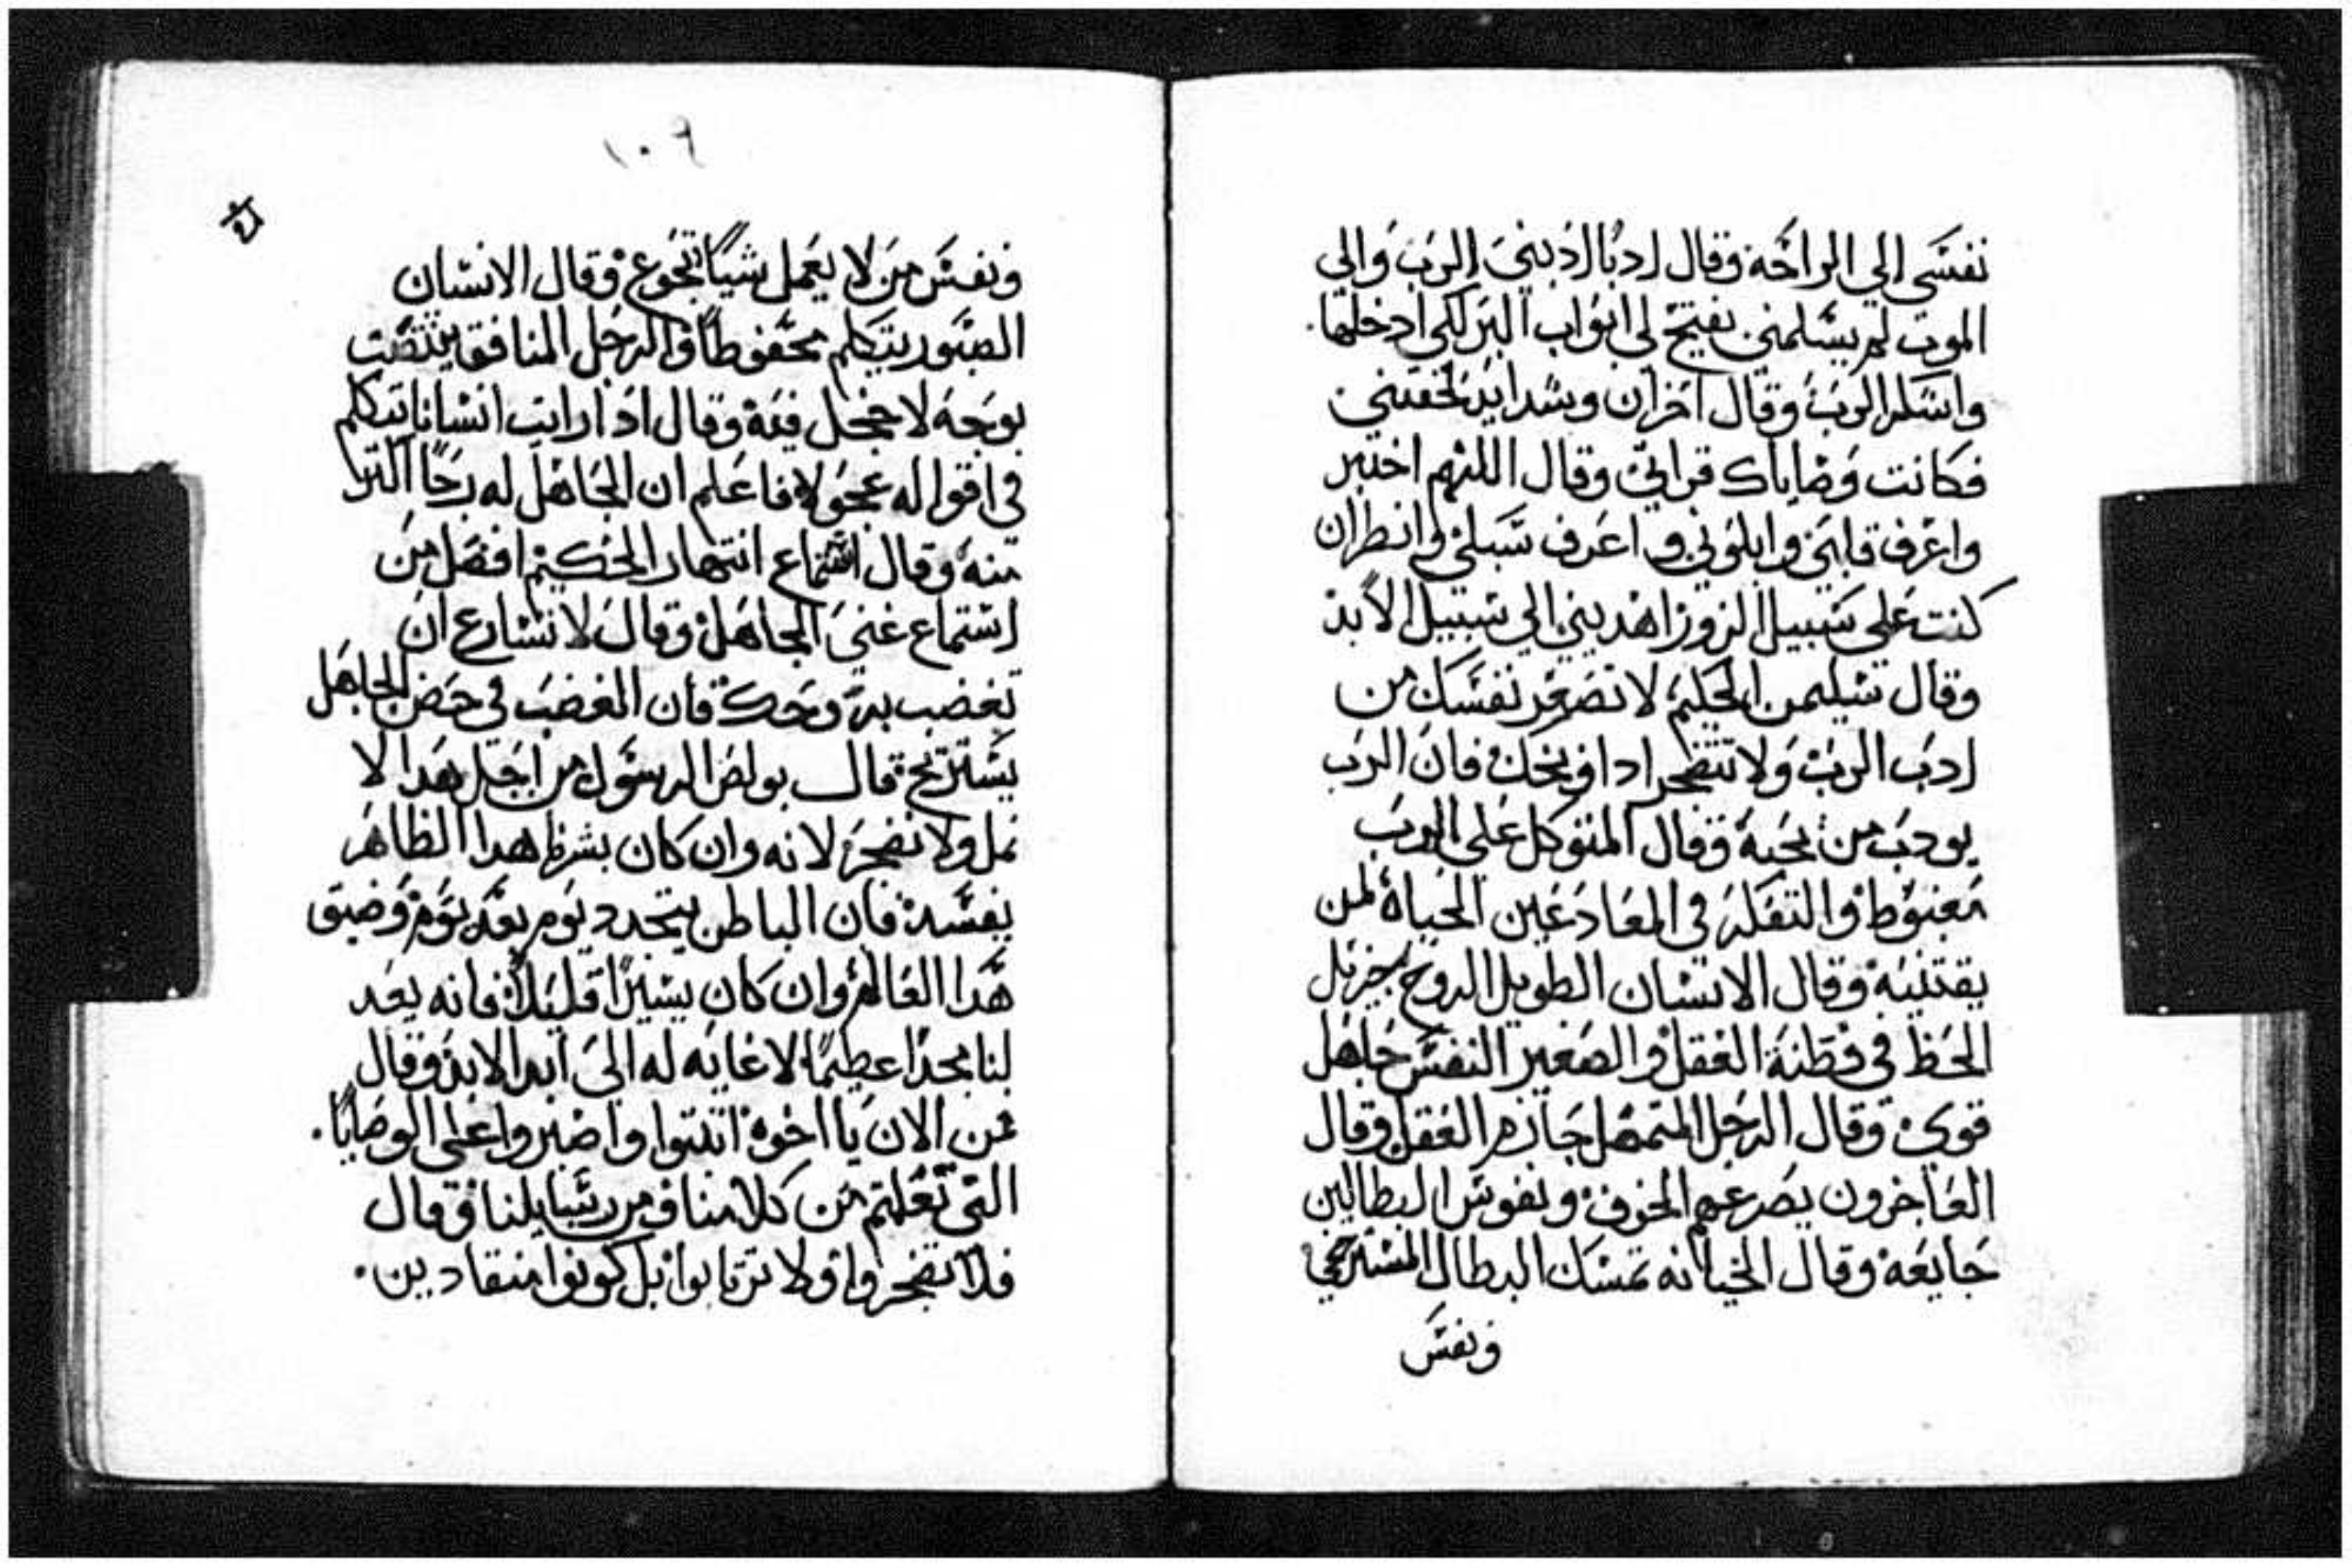 نفسي الي الراحة وقال ادبا ادبني الرب والي
الموت لم يسلمني يفتح لي ابواب البر لكي ادخلها.
واشكر الرب وقال احزان وشدايد لحقتني
فكانت وصاياك قراتي وقال اللهم اختبر
واعرف قلبي وابلوني واعرف سبلي وانظر ان
كنت علي سبيل الزور اهديني الي سبيل الابد
وقال سليمن الحكيم لا تصغر نفسك من
ادب الرب ولا تنضجر اذا وبخك فان الرب
يودب من يحبه وقال المتوكل علي الرب
مغبوط والتفكر في المعاد عين الحياة لمن
يقتنيه وقال الانسان الطويل الروح جزيل
الحظ في فطنة العقل والصغير النفس جاهل
قوي وقال الرجل المتمهل حازم العقل وقال
العاجزون يصرعهم الخوف ونفوس البطالين
جايعه وقال الخيانه تمسك البطال المسترخي
ونفس
١٠٩
ونفس من لا يعمل شيا تجوع وقال الانسان
الصبور يتكلم محفوطا والرجل المنافق ينتصت
بوجه لا خجل فيه وقال ادا رايت انسانا يتكلم
في اقواله عجولا فاعلم ان الجاهل له رجا اكتر
منه وقال استماع انتهار الحكيم افضل من
استماع غني الجاهل وقال لا تسارع ان
تغضب بروحك فان الغضب في حضن الجاهل
يستريح قال بولص الرسول من اجل هدا لا
نمل ولا نضجر لانه وان كان بشرنا هدا الظاهر
يفسد فان الباطن يتجدد يوم بعد يوم وضيق
هدا العالم وان كان يسيرا قليلا فانه يعد
لنا مجدا عطيما لا غايه له الي ابد الابد وقال
من الان يا اخوة اتبتوا واصبروا علي الوصايا.
التي تعلمتم من كلامنا ومن رسايلنا وقال
فلا تضجروا ولا ترتابوا بل كونوا منقادين.